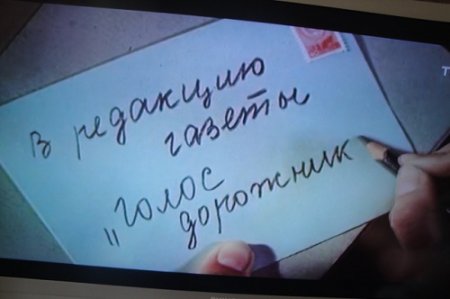 В редакцию
газеты
„Голос
дорожник